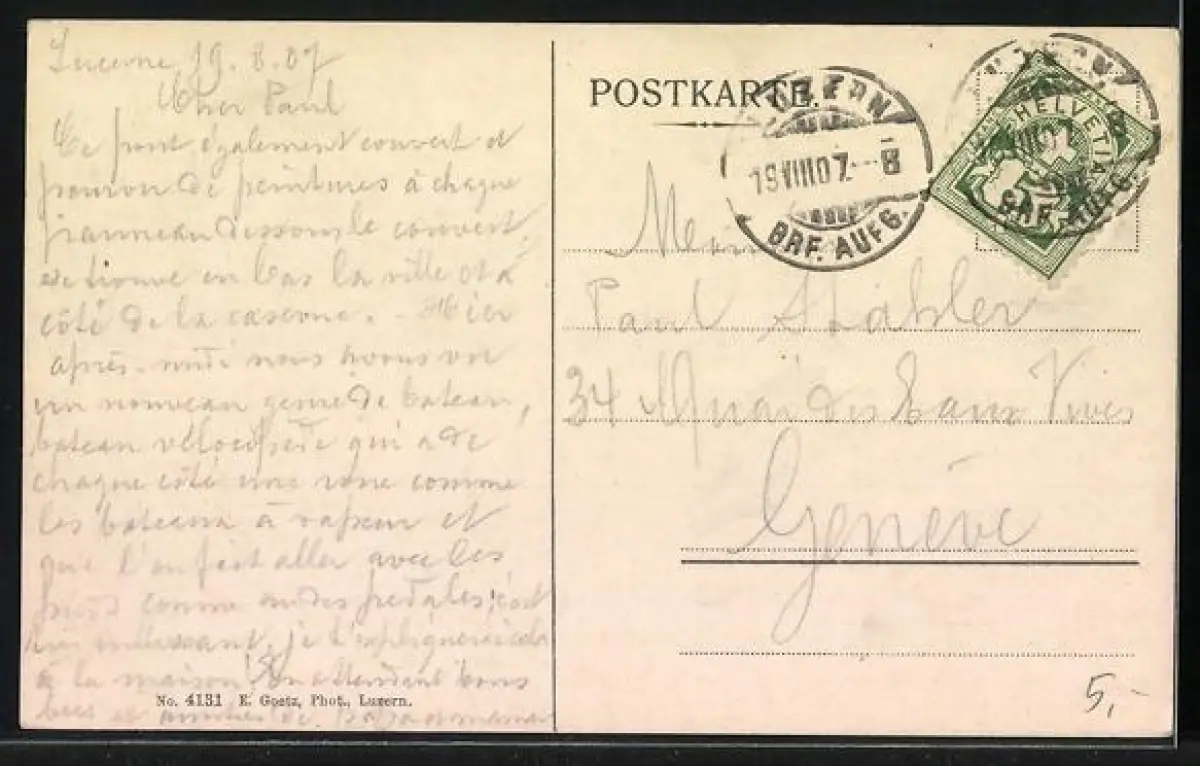 Lucerne, 19. 8. 07
Cher Paul
Ce pont également couvert et
pourvu de peintures à chaque
panneau dessous le couvert,
se trouve en bas la ville et à
côté de la caserne. - Hier
après-midi nous avons vu
un nouveau genre de bateau,
bateau vélocipède qui a de
chaque côté une roue comme
les bateaux à vapeur et
que l'on fait aller avec les
pieds comme au des pédales, c'est
intéressant, je t'expliquerai cela
à la maison. En attendant bons
et amitiés de Papa Maman
No. 4131 E. Goetz, Phot., Luzern.
POSTKARTE.
LUZERN
19 VIII 07. - 8
BRF. AUFG.
LUZERN
VIII 07
BRF. AUFG.
HELVETIA
Paul Stähler
34 Quai des Eaux Vives
Genève
5,-